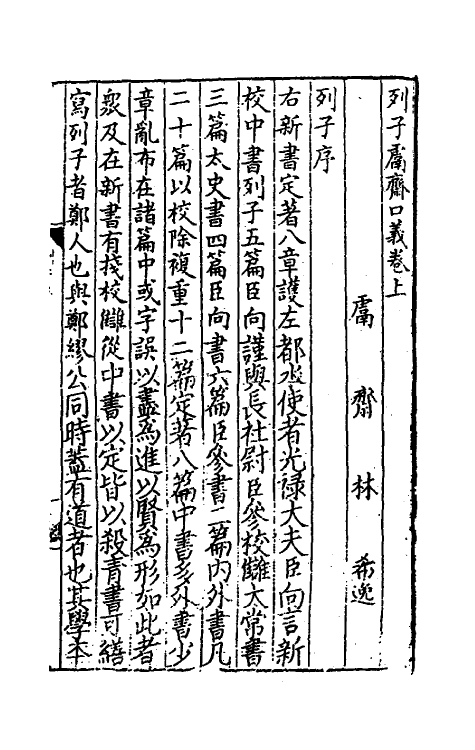 列子鬳齋口義卷上
鬳齋林希逸
列子序
右新書定著八章護左都水使者光祿大夫臣向言新
校中書列子五篇臣向謹與長社尉臣參校讎太常書
三篇太史書四篇臣向書六篇臣參書二篇内外書凡
二十篇以校除複重十二篇定著八篇中書多外書少
章亂布在諸篇中或字誤以盡為進以賢為形如此者
衆及在新書有棧校讎從中書以定皆以殺青書可繕
寫列子者鄭人也與鄭繆公同時蓋有道者也其學本